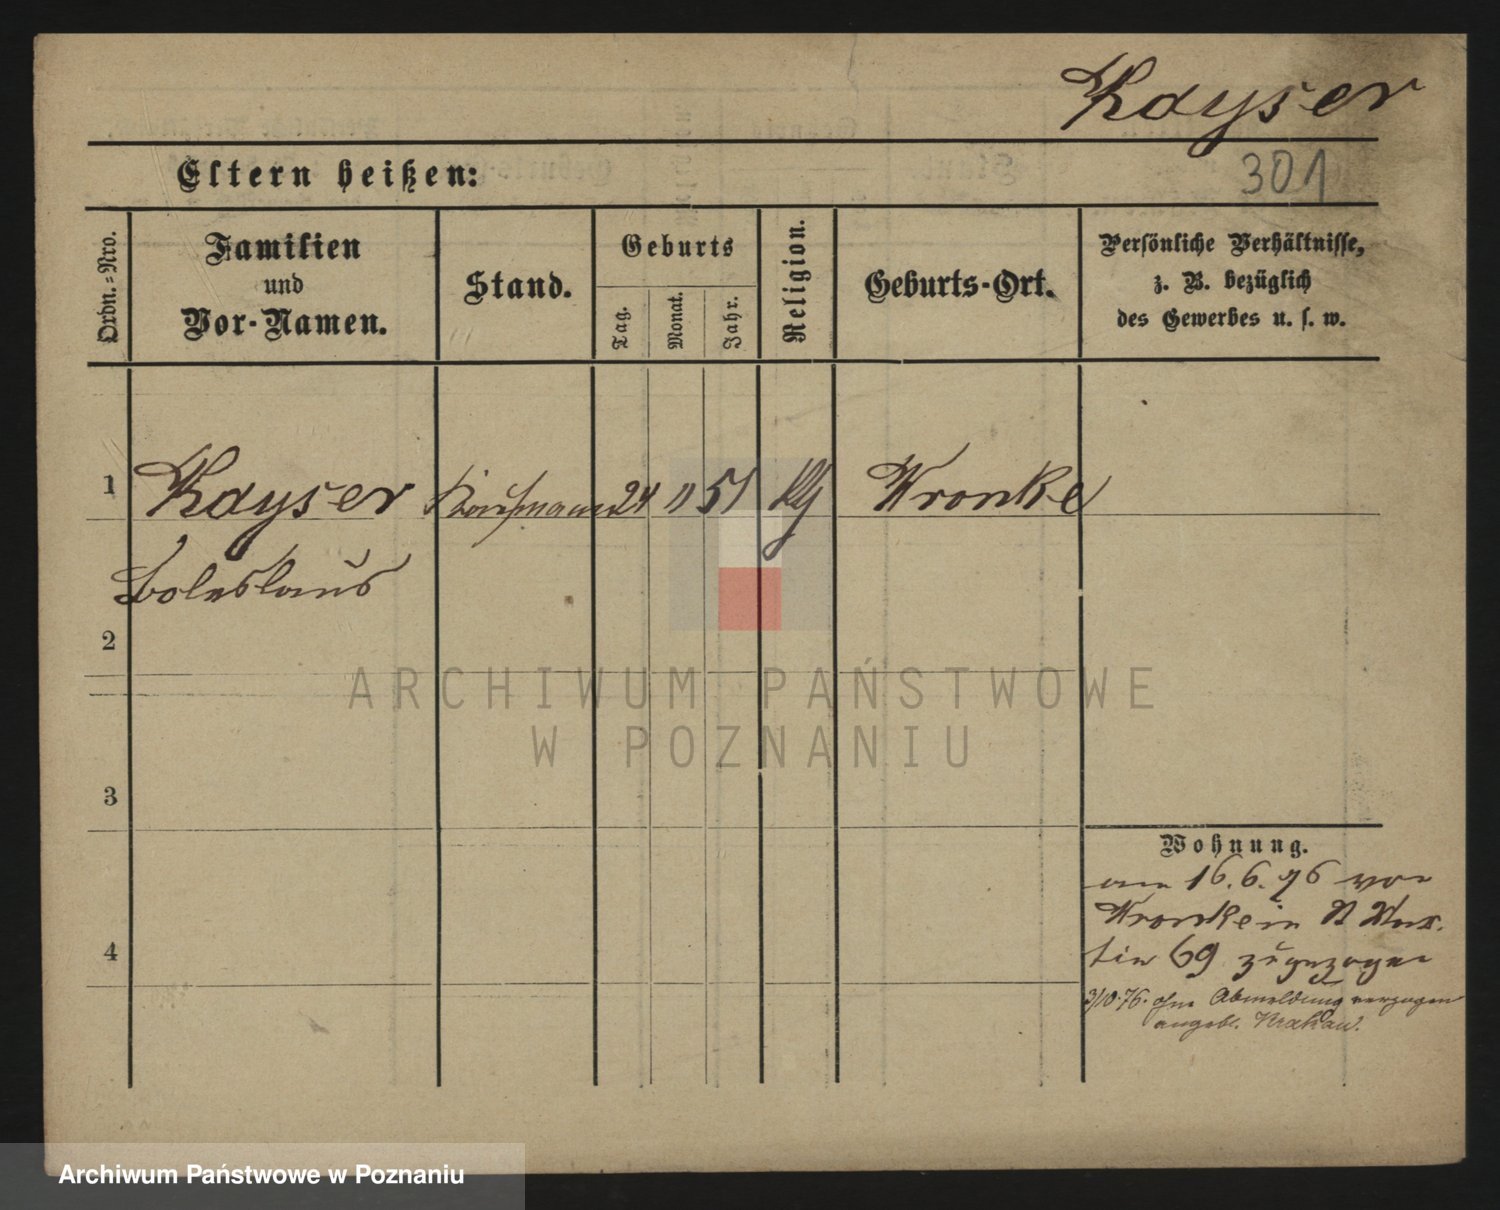 Kayser
Eltern heißen:
301
Ordn.-Nro.
Familien
und
Vor-Namen.
Stand.
Geburts
Tag.
Monat.
Jahr.
Religion.
Geburts-Ort.
Persönliche Verhältnisse,
z. B. bezüglich
des Gewerbes u. s. w.
1 Kayser Kaufmann 24 11 51 Wronke
Boleslaus
2
ARCHIWUM PAŃSTWOWE
W POZNANIU
3
Wohnung.
am 16.6.76 von
Wronke in St Mar.
tin 69 zugezogen
4
3/10.76. ohne Abmeldung verzogen
angebl. Krakau.
Archiwum Państwowe w Poznaniu